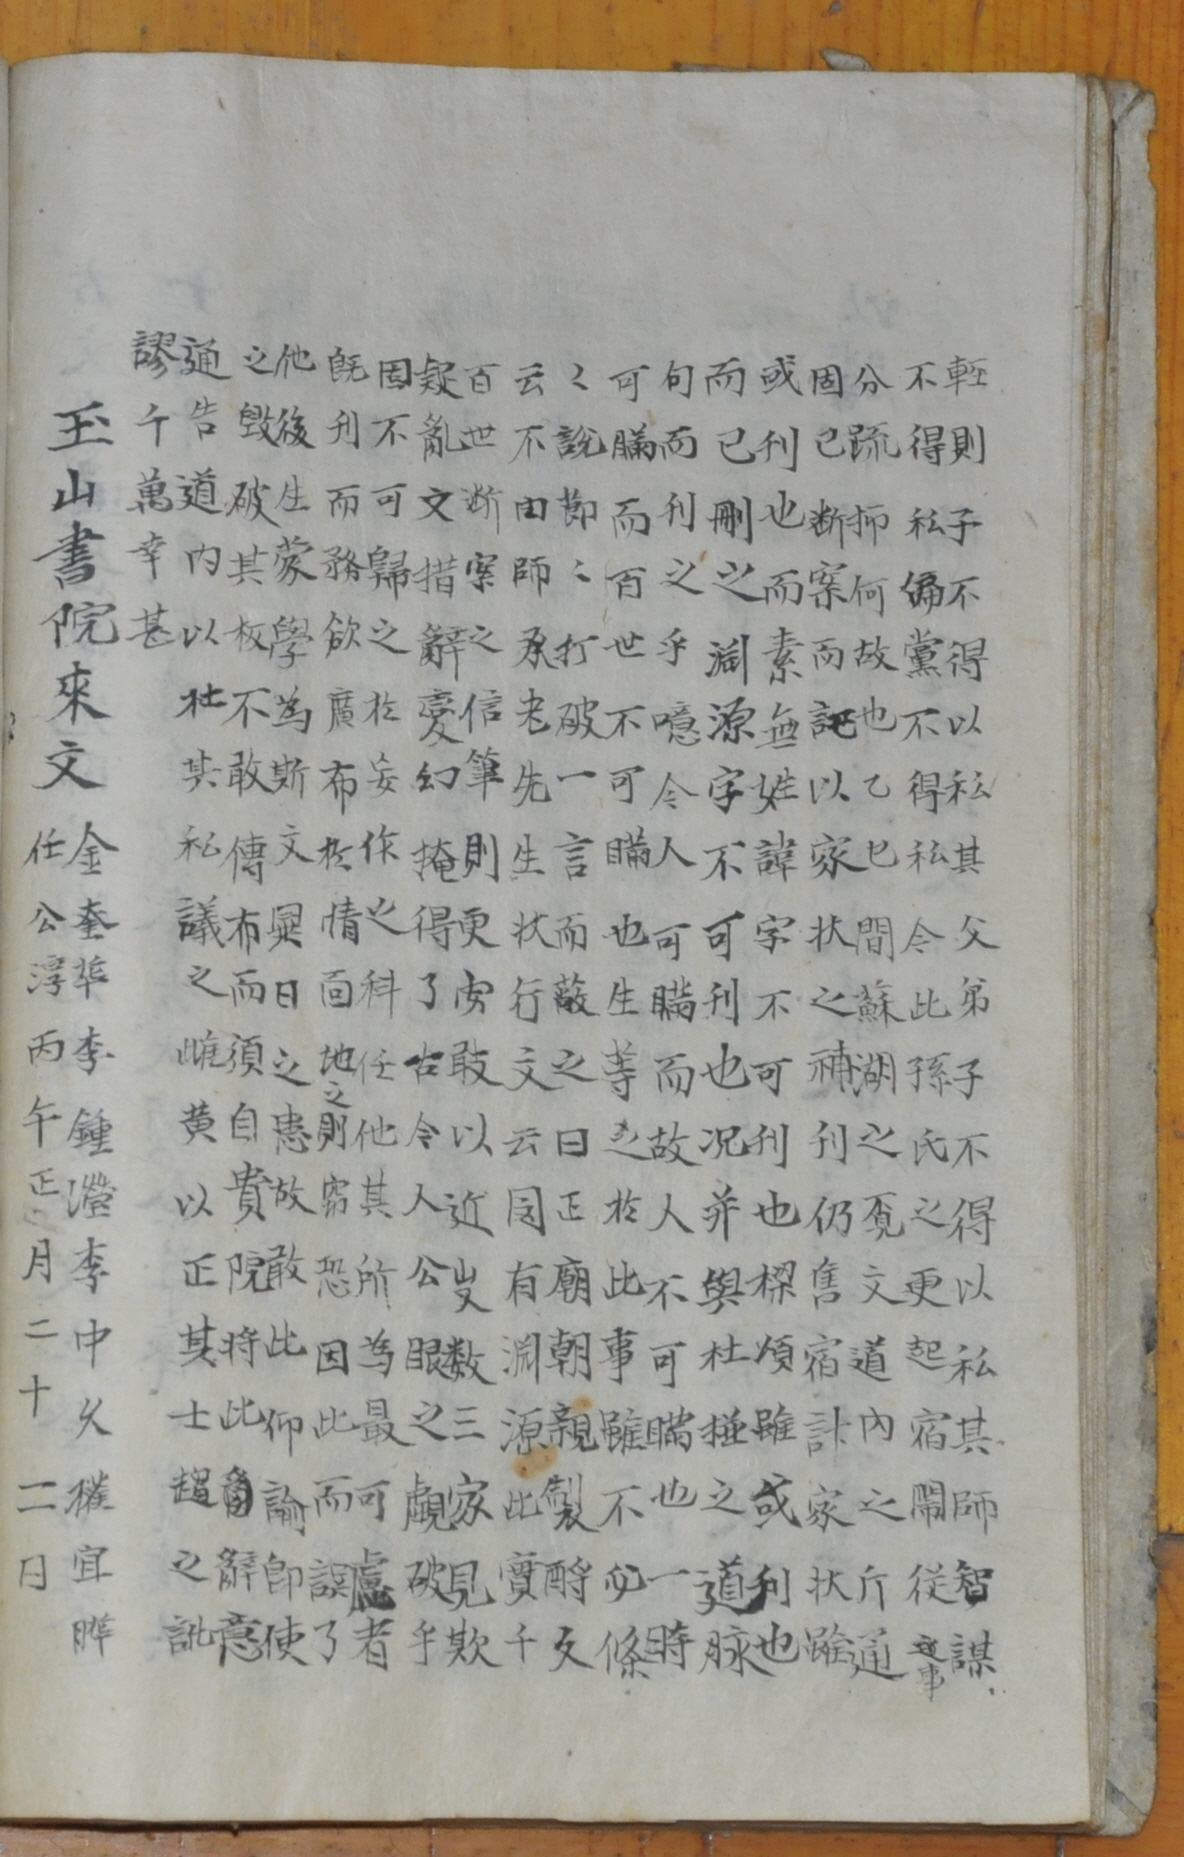 輕則子不得以私其父弟子不得以私其師智謀
不得私偏黨不得私今比孫氏之更起宿鬧從事
分疏抑何故也乙巳間蘇湖之寃文道內之斥通
固已斷案而謊以家狀之補刊仍舊宿計家狀雖
或刊也而素無姓諱字不可刊也樑頌雖或刊也
而已刪之淵源字不可刊也况并與杜撰之道脉
句而刊之乎噫令人可瞞而故人不可瞞也一時
可瞞而百世不可瞞也生等之於此事雖不必條
〻說節〻打破一言而蔽之曰正廟朝親製酹文
云不由師承老先生狀行文云固有淵源此實千
百世斷案之信筆則更安敢以近歲数三家見欺
疑亂文措辭変幻掩得了古今人公眼之覷破乎
固不可歸之於妄作之科任他其所為最可慮者
旣刊而務欲廣布於情面地之則窃恐因此而誤了
他後生蒙學為斯文異日之患故敢此仰論卽使
之毁破其板不敢傳布而須自貴院將此辭意
通告道內以杜其私議之雌黄以正其士趨之訛
謬千萬幸甚
玉山書院來文 金奎華李鍾瀅李中久權宜曄
任公淳丙午正月二十二日